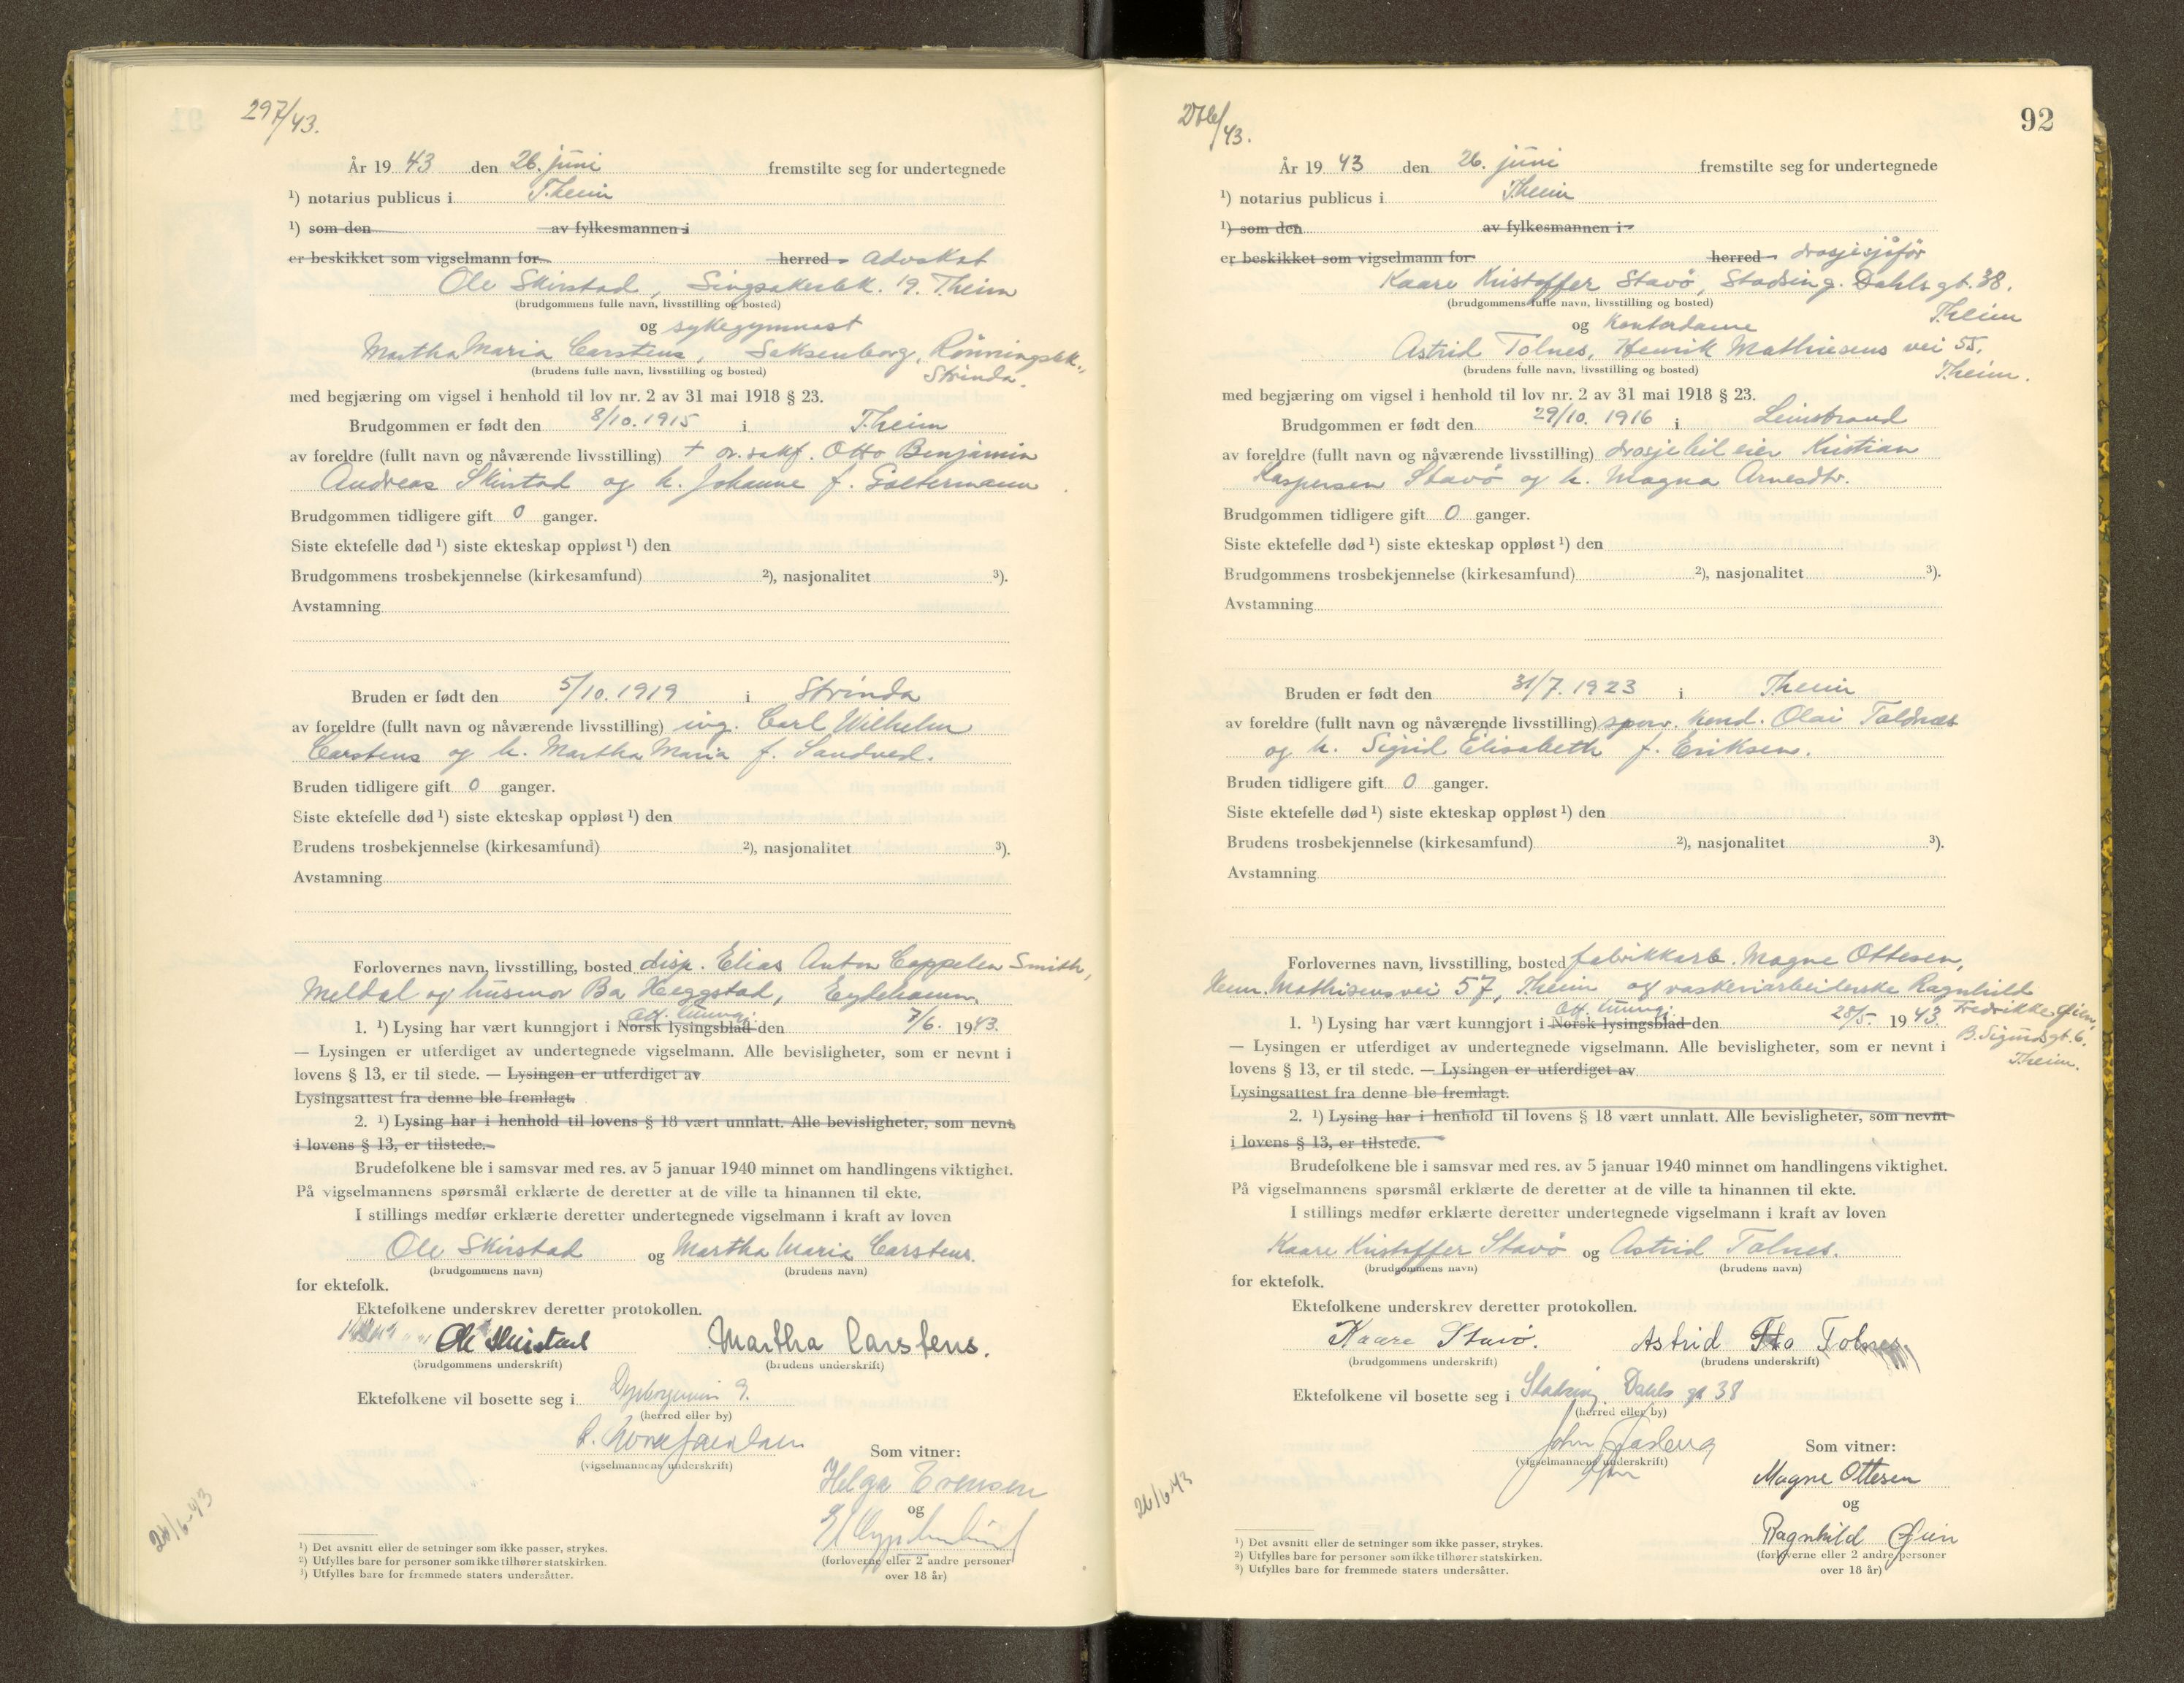 297/43.
År 19 43 den 26. juni fremstilte seg for undertegnede
¹) notarius publicus i T.heim
¹) som den av fylkesmannen i
er beskikket som vigselmann for herred - advokat
Ole Skirstad, Singsakerbk. 19. T.heim
(brudgommens fulle navn, livsstilling og bosted)
og sykegymnast
Martha Maria Carstens, Saksenborg, Rönningsbk.,
(brudens fulle navn, livsstilling og bosted) Strinda.
med begjæring om vigsel i henhold til lov nr. 2 av 31 mai 1918 § 23.
Brudgommen er født den 8/10. 1915 i T.heim
av foreldre (fullt navn og nåværende livsstilling) + or. sakf. Otto Benjamin
Andreas Skirstad og h. Johanne f. Galtermann
Brudgommen tidligere gift 0 ganger.
Siste ektefelle død ¹) siste ekteskap oppløst ¹) den
Brudgommens trosbekjennelse (kirkesamfund) ²), nasjonalitet ³).
Avstamning
Bruden er født den 5/10. 1919 i Strinda
av foreldre (fullt navn og nåværende livsstilling) ing. Carl Wilhelm
Carstens og h. Martha Maria f. Sandved.
Bruden tidligere gift 0 ganger.
Siste ektefelle død ¹) siste ekteskap oppløst ¹) den
Brudens trosbekjennelse (kirkesamfund) ²), nasjonalitet ³).
Avstamning
Forlovernes navn, livsstilling, bosted disp. Elias Anton Cappelen Smith,
Meldal og husmor Ba Heggstad, Eydehamn.
1. ¹) Lysing har vært kunngjort i Norsk lysingsblad den 7/6. 1943.
— Lysingen er utferdiget av undertegnede vigselmann. Alle bevisligheter, som er nevnt i
lovens § 13, er til stede. — Lysingen er utferdiget av
Lysingsattest fra denne ble fremlagt.
2. ¹) Lysing har i henhold til lovens § 18 vært unnlatt. Alle bevisligheter, som nevnt
i lovens § 13, er tilstede.
Brudefolkene ble i samsvar med res. av 5 januar 1940 minnet om handlingens viktighet.
På vigselmannens spørsmål erklærte de deretter at de ville ta hinannen til ekte.
I stillings medfør erklærte deretter undertegnede vigselmann i kraft av loven
Ole Skirstad og Martha Maria Carstens.
(brudgommens navn) (brudens navn)
for ektefolk.
Ektefolkene underskrev deretter protokollen.
Ole Skirstad Martha Carstens.
(brudgommens underskrift) (brudens underskrift)
Ektefolkene vil bosette seg i 9.
(herred eller by)
(vigselmannens underskrift) Som vitner:
Helga
og
(forloverne eller 2 andre personer
over 18 år)
26/6-43
¹) Det avsnitt eller de setninger som ikke passer, strykes.
²) Utfylles bare for personer som ikke tilhører statskirken.
³) Utfylles bare for fremmede staters undersåtter.
92
/43.
År 19 43 den 26. juni fremstilte seg for undertegnede
¹) notarius publicus i T.heim
¹) som den av fylkesmannen i
er beskikket som vigselmann for herred - drosjesjåför
Kaare Kristoffer Stavö, Stadsing. Dahls gt. 38.
(brudgommens fulle navn, livsstilling og bosted) T.heim
og Kontordame
Astrid Tolnes, Henrik Mathiesens vei 55.
(brudens fulle navn, livsstilling og bosted) T.heim.
med begjæring om vigsel i henhold til lov nr. 2 av 31 mai 1918 § 23.
Brudgommen er født den 29/10. 1916 i Leinstrand
av foreldre (fullt navn og nåværende livsstilling) drosjebileier Kristian
Kaspersen Stavö og h. Magna Arnesdtr.
Brudgommen tidligere gift 0 ganger.
Siste ektefelle død ¹) siste ekteskap oppløst ¹) den
Brudgommens trosbekjennelse (kirkesamfund) ²), nasjonalitet ³).
Avstamning
Bruden er født den 31/7. 1923 i T.heim
av foreldre (fullt navn og nåværende livsstilling) sporv. kond. Olai Toldnes
og h. Sigrid Elisabeth f. Eriksen.
Bruden tidligere gift 0 ganger.
Siste ektefelle død ¹) siste ekteskap oppløst ¹) den
Brudens trosbekjennelse (kirkesamfund) ²), nasjonalitet ³).
Avstamning
Forlovernes navn, livsstilling, bosted fabrikkarb. Magne Ottesen,
Henr. Mathisens vei 57, T.heim og vaskeriarbeiderske Ragnhild
1. ¹) Lysing har vært kunngjort i Norsk lysingsblad den 28/5. 1943. Fredrikke Øien,
— Lysingen er utferdiget av undertegnede vigselmann. Alle bevisligheter, som er nevnt i B. Sigurds gt. 6.
lovens § 13, er til stede. — Lysingen er utferdiget av T.heim.
Lysingsattest fra denne ble fremlagt.
2. ¹) Lysing har i henhold til lovens § 18 vært unnlatt. Alle bevisligheter, som nevnt
i lovens § 13, er tilstede.
Brudefolkene ble i samsvar med res. av 5 januar 1940 minnet om handlingens viktighet.
På vigselmannens spørsmål erklærte de deretter at de ville ta hinannen til ekte.
I stillings medfør erklærte deretter undertegnede vigselmann i kraft av loven
Kaare Kristoffer Stavö og Astrid Tolnes.
(brudgommens navn) (brudens navn)
for ektefolk.
Ektefolkene underskrev deretter protokollen.
Kaare Stavö. Astrid Tolnes
(brudgommens underskrift) (brudens underskrift)
Ektefolkene vil bosette seg i Stadsing. Dahls gt 38
(herred eller by)
John
(vigselmannens underskrift) Som vitner:
Magne Ottesen
og
Ragnhild Øien
(forloverne eller 2 andre personer
over 18 år)
26/6-43
¹) Det avsnitt eller de setninger som ikke passer, strykes.
²) Utfylles bare for personer som ikke tilhører statskirken.
³) Utfylles bare for fremmede staters undersåtter.